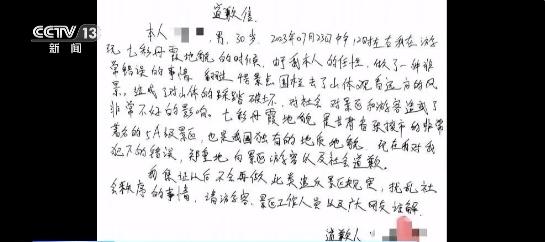 CCTV 13
新闻
道歉信
本人 ，男，30岁。2023年07月23日中午12时左右我在游
玩七彩丹霞地貌的时候，由于我本人的任性，做了一种非
常错误的事情。翻过 景点围栏去了山体观看远方的风
景，造成了对山体的踩踏破坏，对社会对景区和游客造成了
非常不好的影响。七彩丹霞地貌是甘肃省张掖市的非常
著名的5A级景区，也是我国独有的地质地貌。现在我对我
犯下的错误，郑重地向景区游客以及社会道歉。
我保证以后不会再做此类违反景区规定，扰乱社
会秩序的事情，请游客、景区工作人员以及广大网友谅解。
道歉人